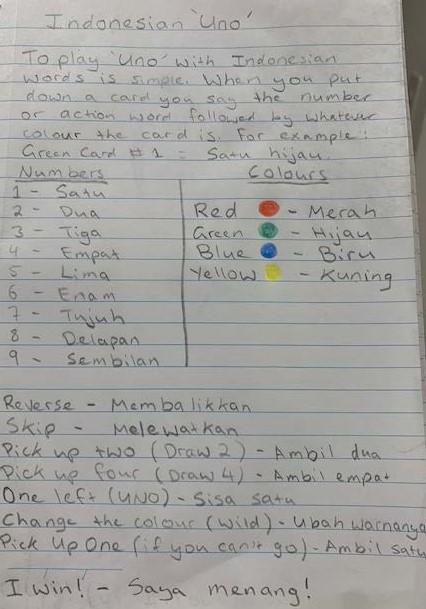 Indonesian 'Uno'
To play 'Uno' with Indonesian
words is simple. When you put
down a card you say the number
or action word followed by whatever
colour the card is. For example:
Green Card #1 = Satu hijau.
Numbers
1 - Satu
2 - Dua
3 - Tiga
4 - Empat
5 - Lima
6 - Enam
7 - Tujuh
8 - Delapan
9 - Sembilan
Colours
Red - Merah
Green - Hijau
Blue - Biru
Yellow - Kuning
Reverse - Membalikkan
Skip - Melewatkan
Pick up two (Draw 2) - Ambil dua
Pick up four (Draw 4) - Ambil empat
One left (UNO) - Sisa satu
Change the colour (Wild) - Ubah warnanya
Pick Up One (if you can't go) - Ambil satu
I win! - Saya menang!